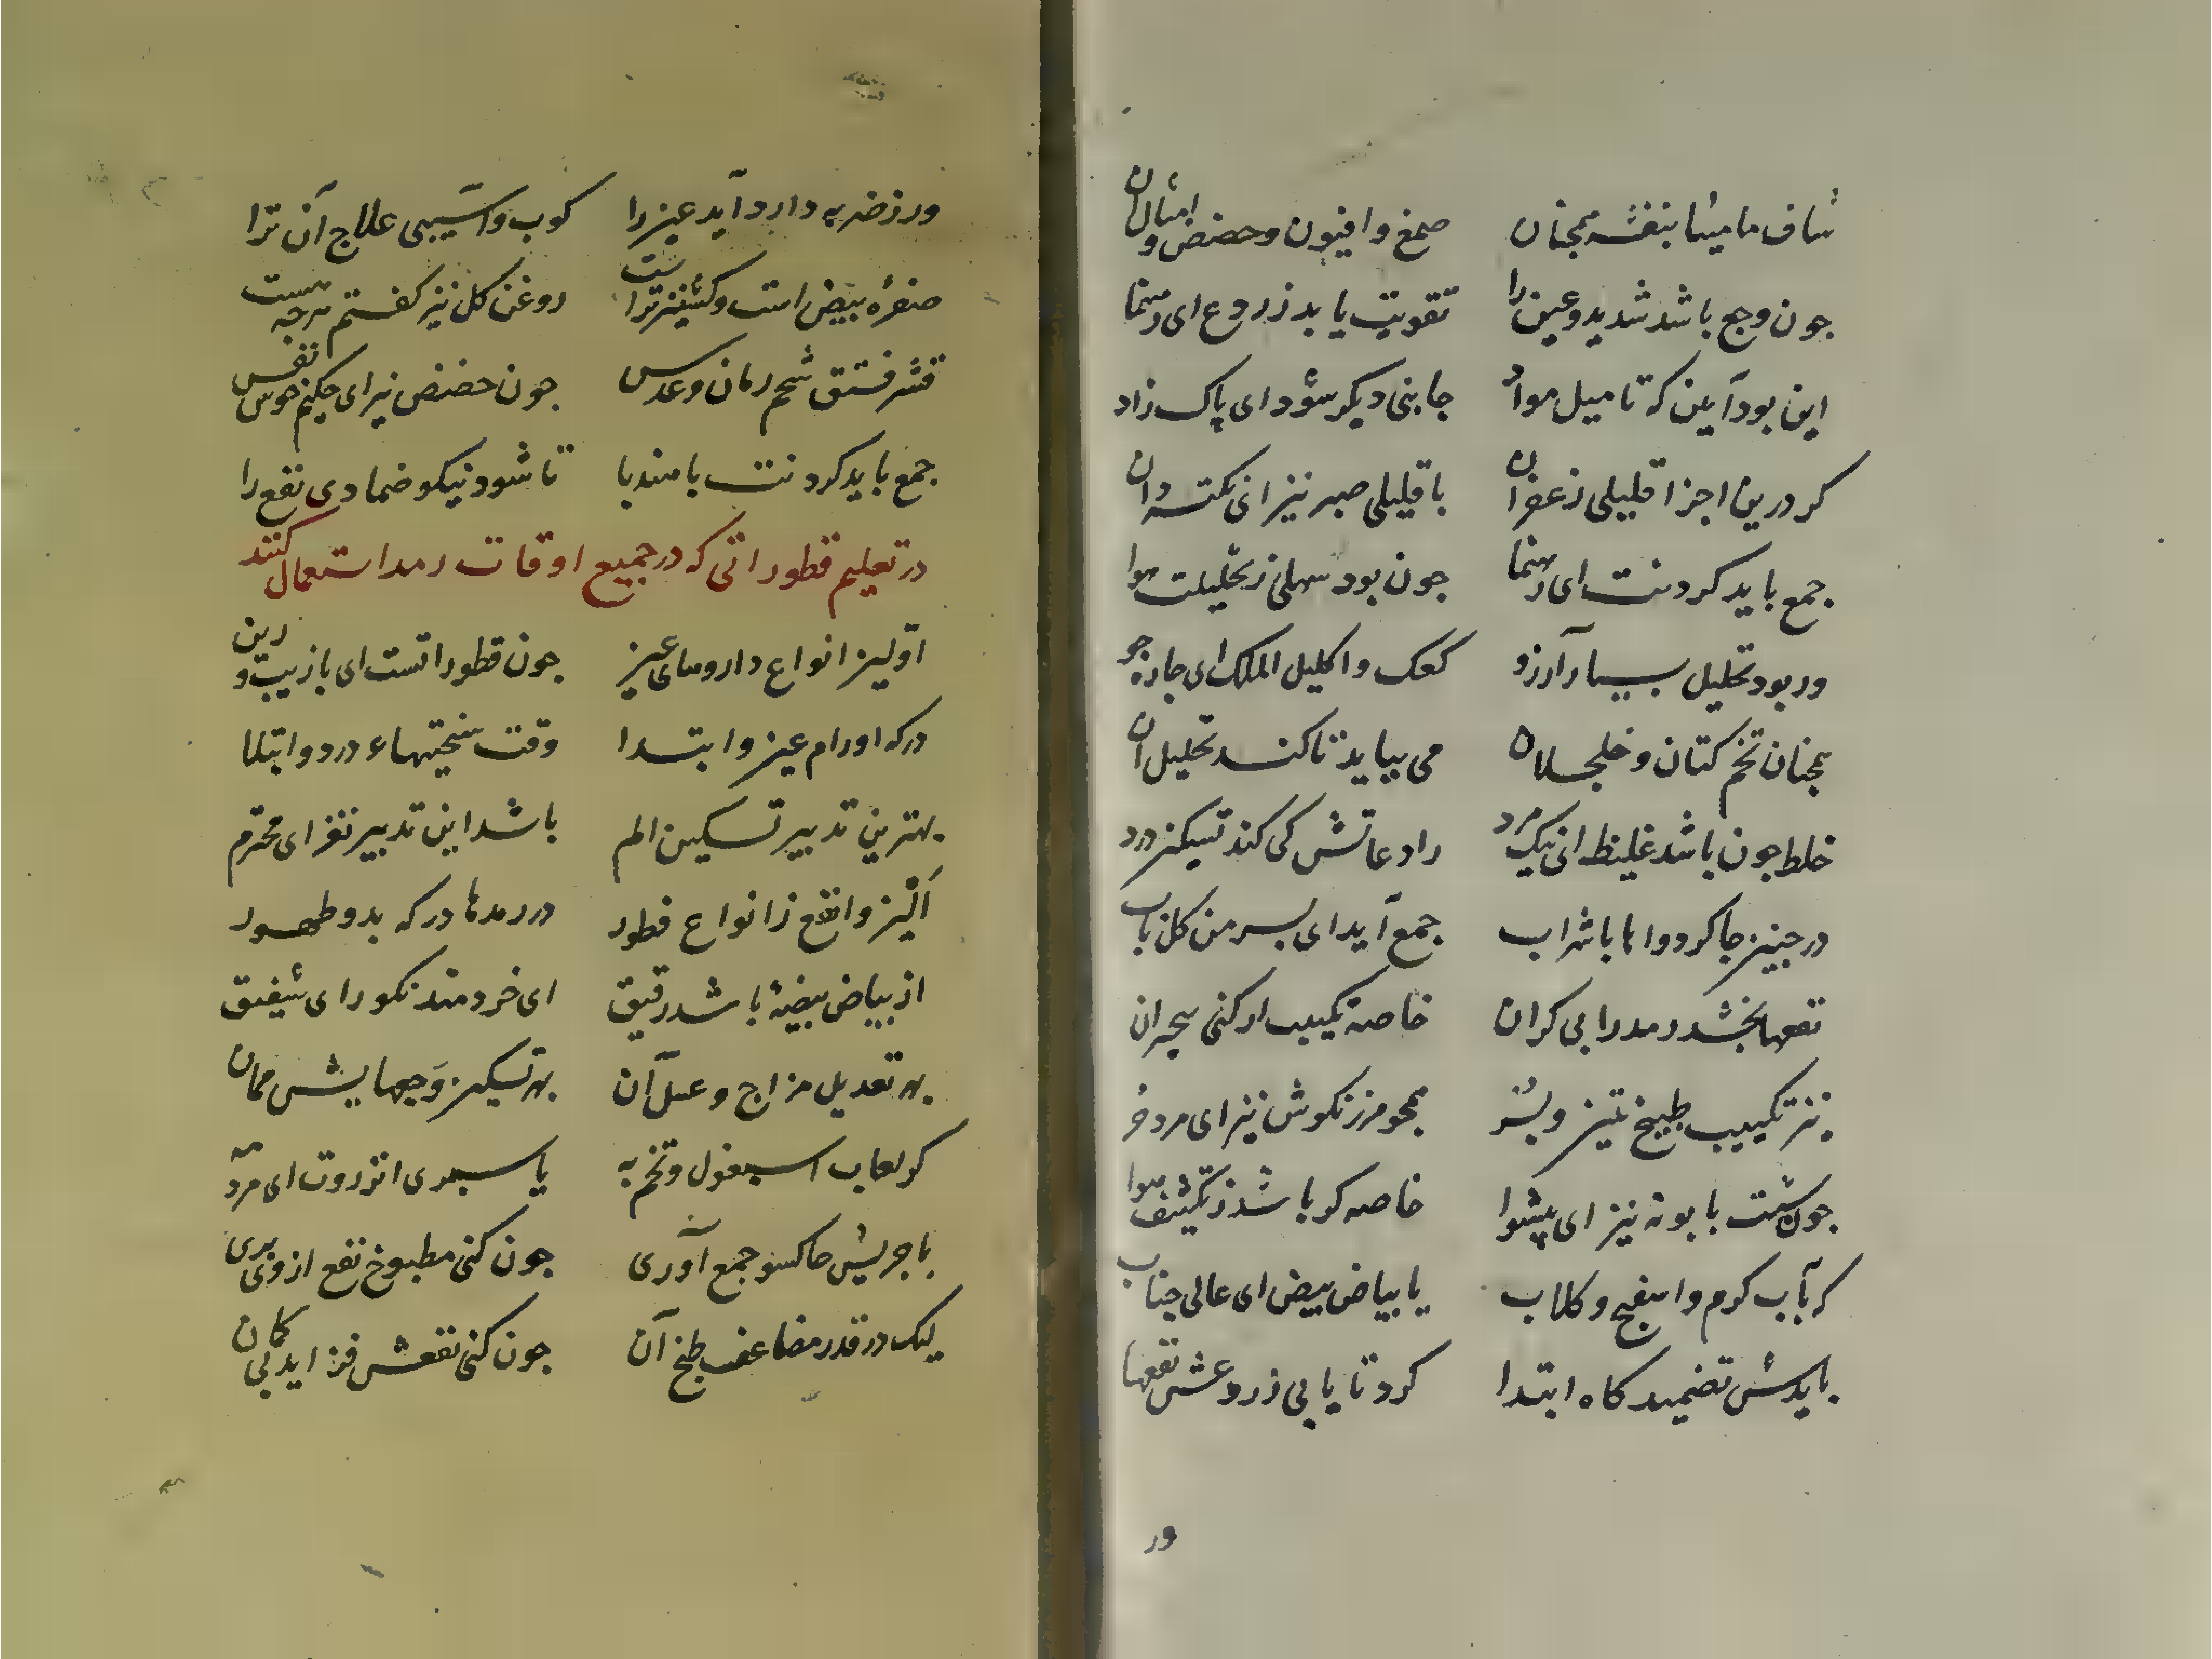 شاف مامیثا بنفشه همچنان صمغ و افیون و حضض و امثال آن
جون وجع باشد شدید و عین را تقویت یابد ز ردع ای رهنما
این بود آیین که تا میل مواد جانبی دیکر شود ای پاک زاد
کر درین اجزا قلیلی زعفران با قلیلی صبر نیز ای نکته دان
جمع باید کردنت ای رهنما جون بود سهلی ز تحلیلت هوا
ور بود تحلیل بسیار آرزو کعک و اکلیل الملک ای جاره جو
همچنان تخم کتان و خلجلان می بباید تا کند تحلیل آن
خلط جون باشد غلیظ ای نیک مرد رادعاتش کی کند تسکین درد
در جنین جا کر دواها با شراب جمع آید ای بسر من کل باب
نفعها بخشد رمد را بی کران خاصه تکمید ار کنی بی جران
نیز تکمید طبیخ تین و بُسُر همچو مرزنکوش نیز ای مرد حُر
جون شبت بابونه نیز ای پیشوا خاصه کو باشد ز تکثیف هوا
کر بآب کرم و اسفنج و کلاب یا بیاض بیض ای عالی جناب
بایدش تضمید کاه ابتدا کرد تا یابی ز ردعش نفعها
ور
ور ز ضربه دارد آید عین را کوب و آسیبی علاج آن ترا
صفرهٔ بیض است و کشنیز تراست روغن کل نیز کفتم هرجه هست
قشر فستق شحم رمان و عدس جون حضض نیز ای حکیم خوش نفس
جمع باید کردنت با هندبا تا شود نیکو ضمادی نفع را
در تعلیم قطوراتی که در جمیع اوقات رمد استعمال کنند
اولین انواع داروهای عین جون قطوراتست ای با زیب و زین
در که اورام عین و ابتدا وقت سختیهاء درد و ابتلا
بهترین تدبیر تسکین الم باشد این تدبیر نغز ای محترم
الین و انفع ز انواع قطور در رمدها در که بدو ظهور
از بیاض بیضهٔ باشد رقیق ای خردمند نکو رای شفیق
بهر تعدیل مزاج و غسل آن بهر تسکین وَجعهایش همان
کر لعاب اسبغول و تخم به یا سبدی انزروت ای مرد مه
با جریش حاکسو جمع آوری جون کنی مطبوخ نفع از وی بری
لیک در قدر مضاعف طبخ آن جون کنی نفعش فزاید بی کمان